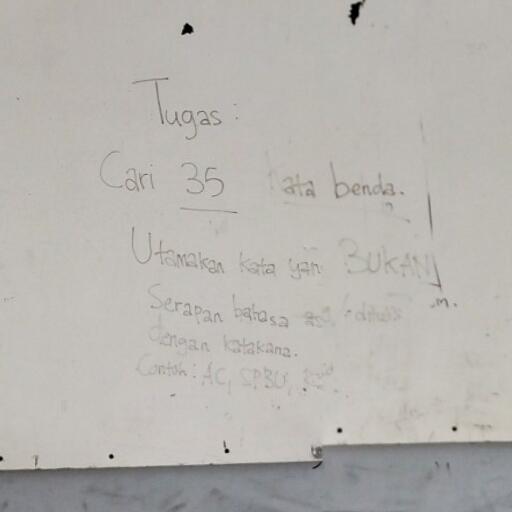 Tugas:
Cari 35 kata benda.
Utamakan kata yan BUKAN
Serapan bahasa
dengan katakana.
Contoh: AC, SPBU,